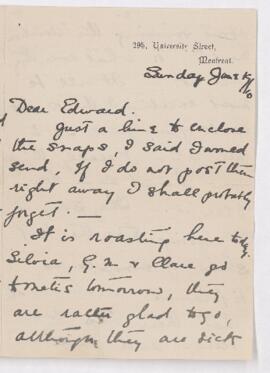 295, University Street,
Montreal.
Sunday June
Dear Edward.
Just a line to enclose
the snaps, I said I would
send, If I do not post them
right away I shall probably
forget. —
It is roasting here today.
Silvia, G.M & Clare go
to Metis tomorrow, they
are rather glad to go,
although they are sick